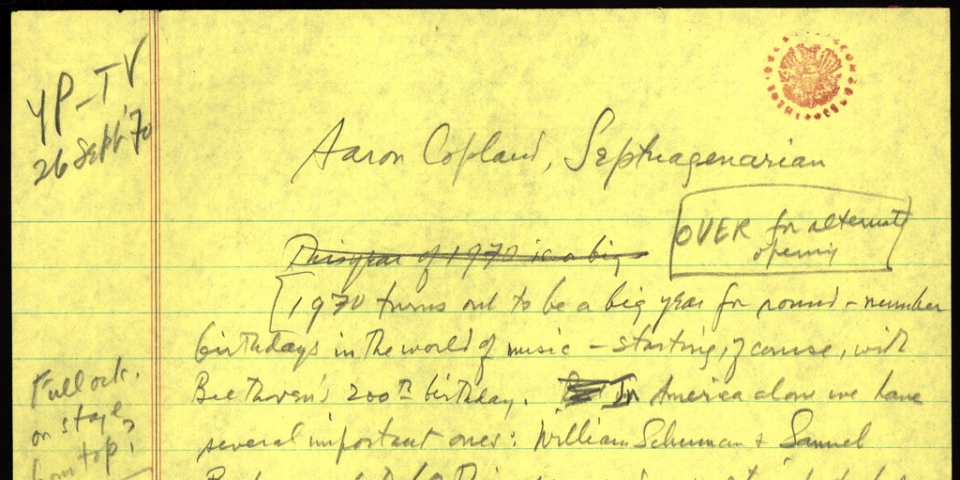 YP-TV
26 Sept '70
Aaron Copland, Septuagenarian
OVER for alternate
opening
This year of 1970 is a big
[1970 turns out to be a big year for round-number
birthdays in the world of music – starting, of course, with
Beethoven's 200th birthday. In America alone we have
several important ones: William Schuman & Samuel
Full orch.
on stage
from top!